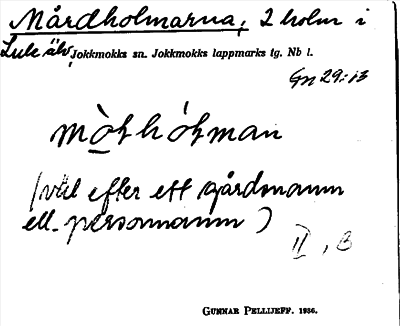 Mårdholmarna, 2 holm i
Lule älv, Jokkmokks sn. Jokkmokks lappmarks tg. Nb l.
Gn 29:13
mòthó̵tman
(väl efter ett gårdnamn
ell. personnamn)
II, B
GUNNAR PELLIJEFF. 1936.